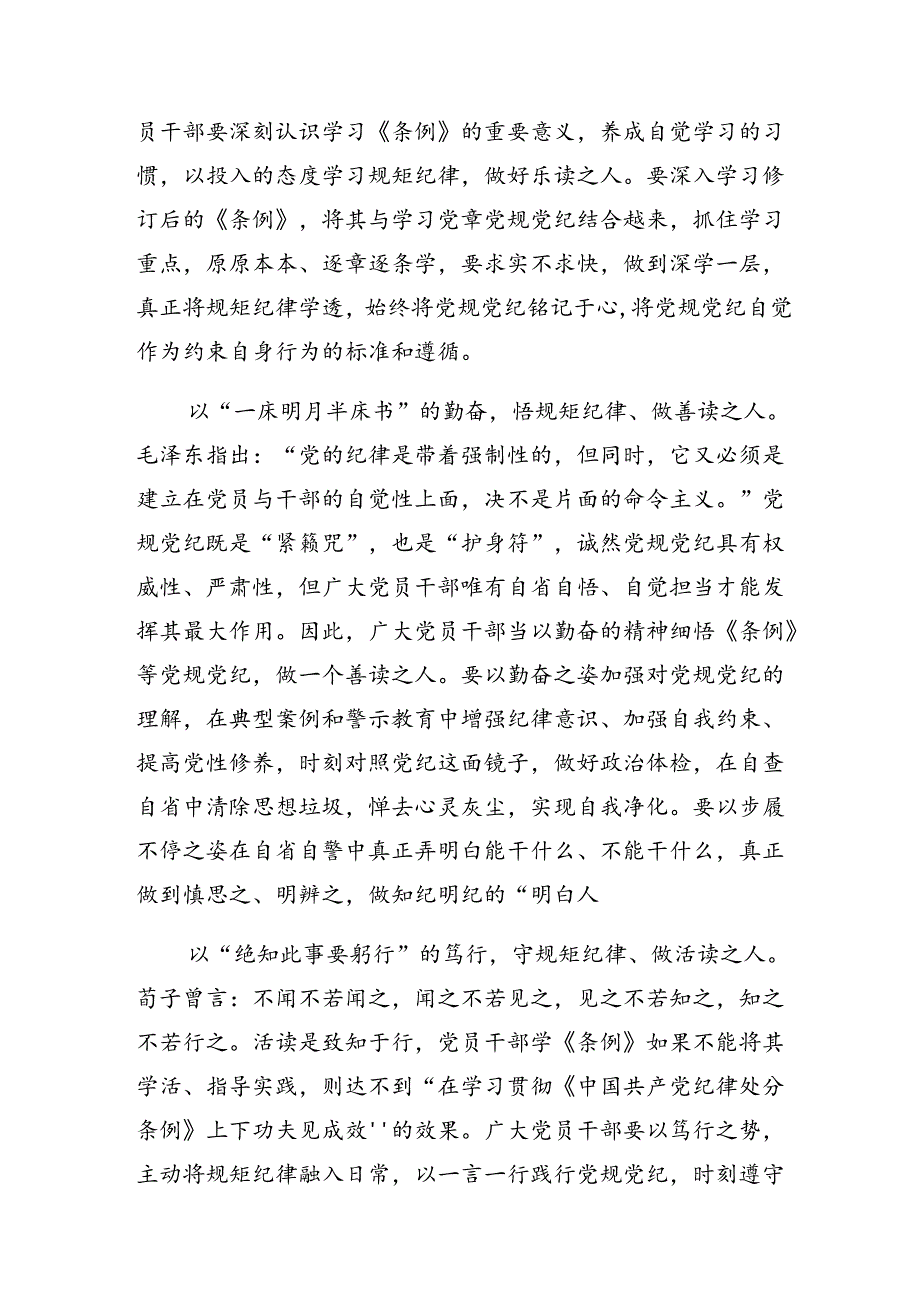 员干部要深刻认识学习《条例》的重要意义，养成自觉学习的习
惯，以投入的态度学习规矩纪律，做好乐读之人。要深入学习修
订后的《条例》，将其与学习党章党规党纪结合越来，抓住学习
重点，原原本本、逐章逐条学，要求实不求快，做到深学一层，
真正将规矩纪律学透，始终将党规党纪铭记于心,将党规党纪自觉
作为约束自身行为的标准和遵循。
以“一床明月半床书”的勤奋，悟规矩纪律、做善读之人。
毛泽东指出：“党的纪律是带着强制性的，但同时，它又必须是
建立在党员与干部的自觉性上面，决不是片面的命令主义。”党
规党纪既是“紧籁咒”，也是“护身符”，诚然党规党纪具有权
威性、严肃性，但广大党员干部唯有自省自悟、自觉担当才能发
挥其最大作用。因此，广大党员干部当以勤奋的精神细悟《条例》
等党规党纪，做一个善读之人。要以勤奋之姿加强对党规党纪的
理解，在典型案例和警示教育中增强纪律意识、加强自我约束、
提高党性修养，时刻对照党纪这面镜子，做好政治体检，在自查
自省中清除思想垃圾，惮去心灵灰尘，实现自我净化。要以步履
不停之姿在自省自警中真正弄明白能干什么、不能干什么，真正
做到慎思之、明辨之，做知纪明纪的“明白人
以“绝知此事要躬行”的笃行，守规矩纪律、做活读之人。
荀子曾言：不闻不若闻之，闻之不若见之，见之不若知之，知之
不若行之。活读是致知于行，党员干部学《条例》如果不能将其
学活、指导实践，则达不到“在学习贯彻《中国共产党纪律处分
条例》上下功夫见成效''的效果。广大党员干部要以笃行之势，
主动将规矩纪律融入日常，以一言一行践行党规党纪，时刻遵守